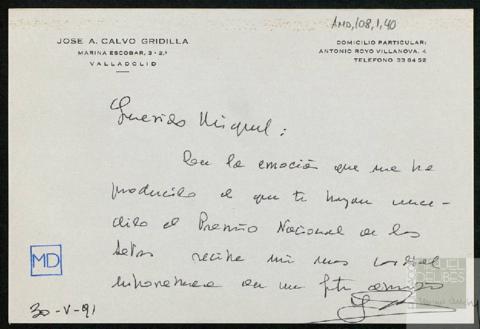 AMD,108,1,40
JOSE A. CALVO GRIDILLA
MARINA ESCOBAR, 3 - 2.º
VALLADOLID
DOMICILIO PARTICULAR:
ANTONIO ROYO VILLANOVA, 4
TELEFONO 33 84 52
Querido Miguel:
Con la emoción que me ha
producido el que te hayan conce-
dido el Premio Nacional de las
Letras recibe mi mas cordial
enhorabuena de un
MD
30-V-91
MIGUEL
DELIBES